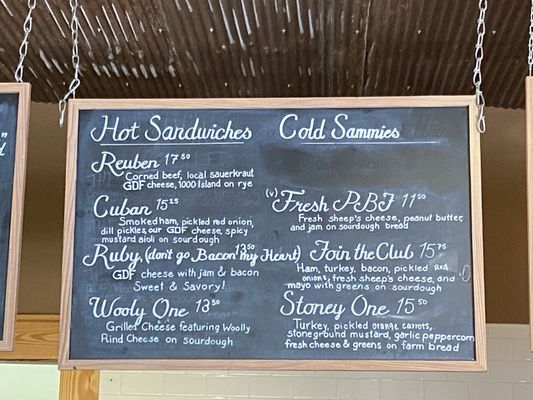 Hot Sandwiches
Reuben 17.50
Corned beef, local sauerkraut
GDF cheese, 1000 Island on rye
Cuban 15.25
Smoked ham, pickled red onion,
dill pickles, our GDF cheese, spicy
mustard aioli on sourdough
Ruby, (don't go Bacon my Heart) 13.50
GDF cheese with jam & bacon
Sweet & Savory!
Wooly One 13.50
Grilled Cheese featuring Woolly
Rind Cheese on sourdough
Cold Sammies
(v) Fresh PBJ 11.50
Fresh sheep's cheese, peanut butter,
and jam on sourdough bread
Join the Club 15.75
Ham, turkey, bacon, pickled red
onions, fresh sheep's cheese, and
mayo with greens on sourdough
Stoney One 15.50
Turkey, pickled orange, carrots,
stoneground mustard, garlic peppercorn
fresh cheese & greens on farm bread